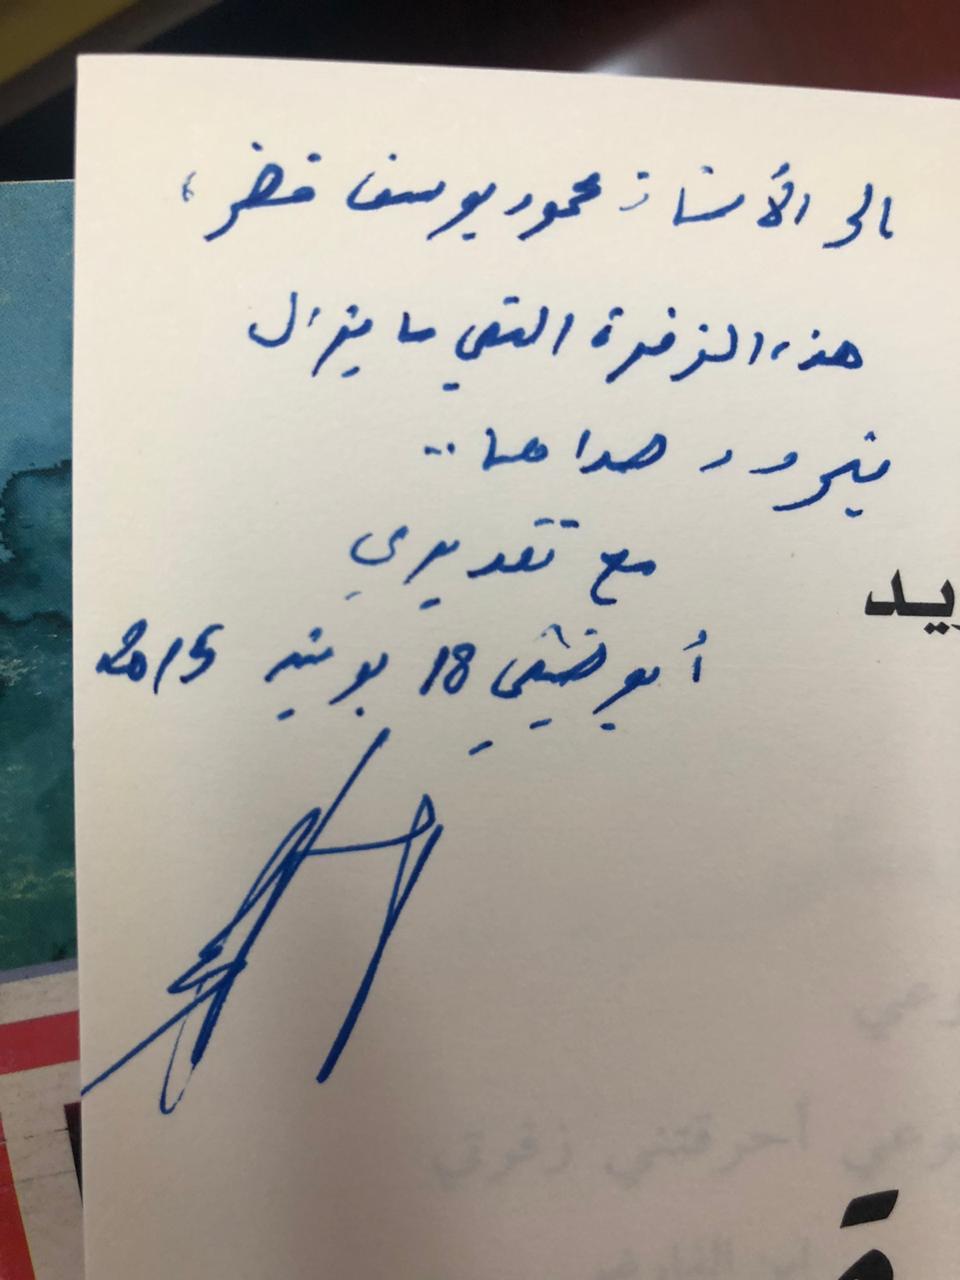 إلى الأستاذ محمود يوسف خضر،
هذه الزفرة التي ما يزال
يتردد صداها..
مع تقديري
أبوظبي 18 يونيه 2015
يد
عي
وعي أحرقتني زفرتي
ابن الفارض